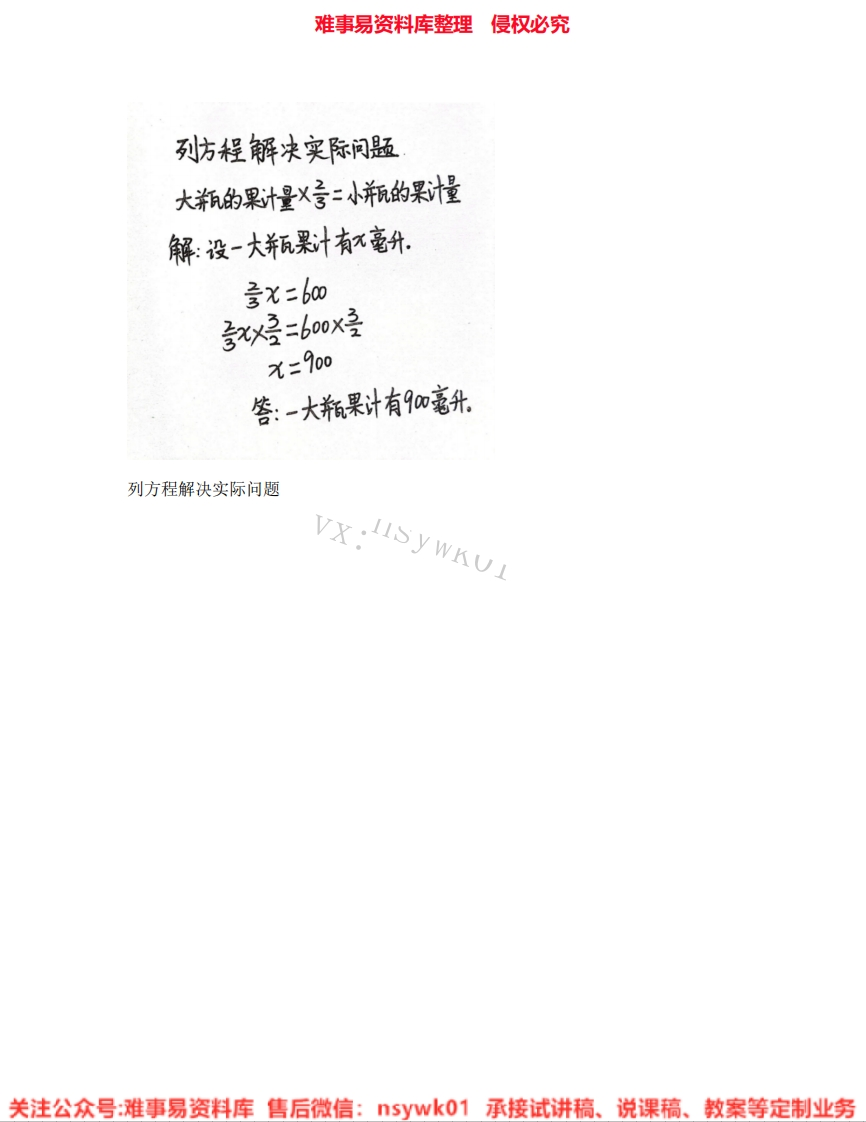 难事易资料库整理 侵权必究
列方程解决实际问题.
大瓶的果汁量×2/3=小瓶的果汁量
解:设一大瓶果汁有x毫升.
2/3x=600
2/3x×3/2=600×3/2
x=900
答:一大瓶果汁有900毫升。
列方程解决实际问题
VX:nsywk01
关注公众号:难事易资料库 售后微信：nsywk01 承接试讲稿、说课稿、教案等定制业务